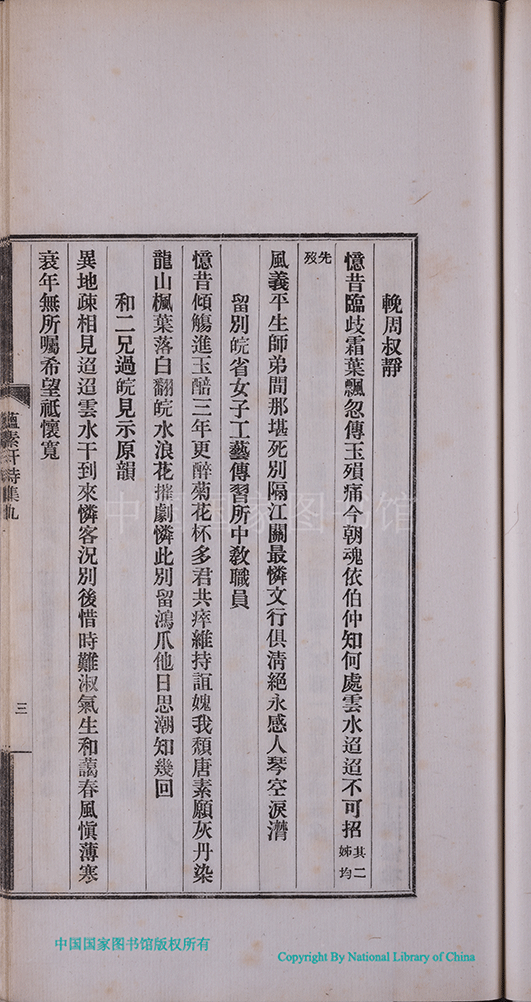 輓周叔靜
憶昔臨歧霜葉飄忽傳玉殞痛今朝魂依伯仲知何處雲水迢迢不可招其二姊均
先歿
風義平生師弟間那堪死別隔江關最憐文行俱淸絕永感人琴空淚潸
留別皖省女子工藝傳習所中敎職員
憶昔傾觴進玉醅三年更醉菊花杯多君共瘁維持誼媿我頹唐素願灰丹染
龍山楓葉落白翻皖水浪花摧劇憐此別留鴻爪他日思潮知幾回
和二兄過皖見示原韻
異地疎相見迢迢雲水干到來憐客況別後惜時難淑氣生和藹春風愼薄寒
衰年無所囑希望祗懷寬
素軒詩集九
三
中国国家图书馆
中国国家图书馆版权所有
Copyright By National Library of China